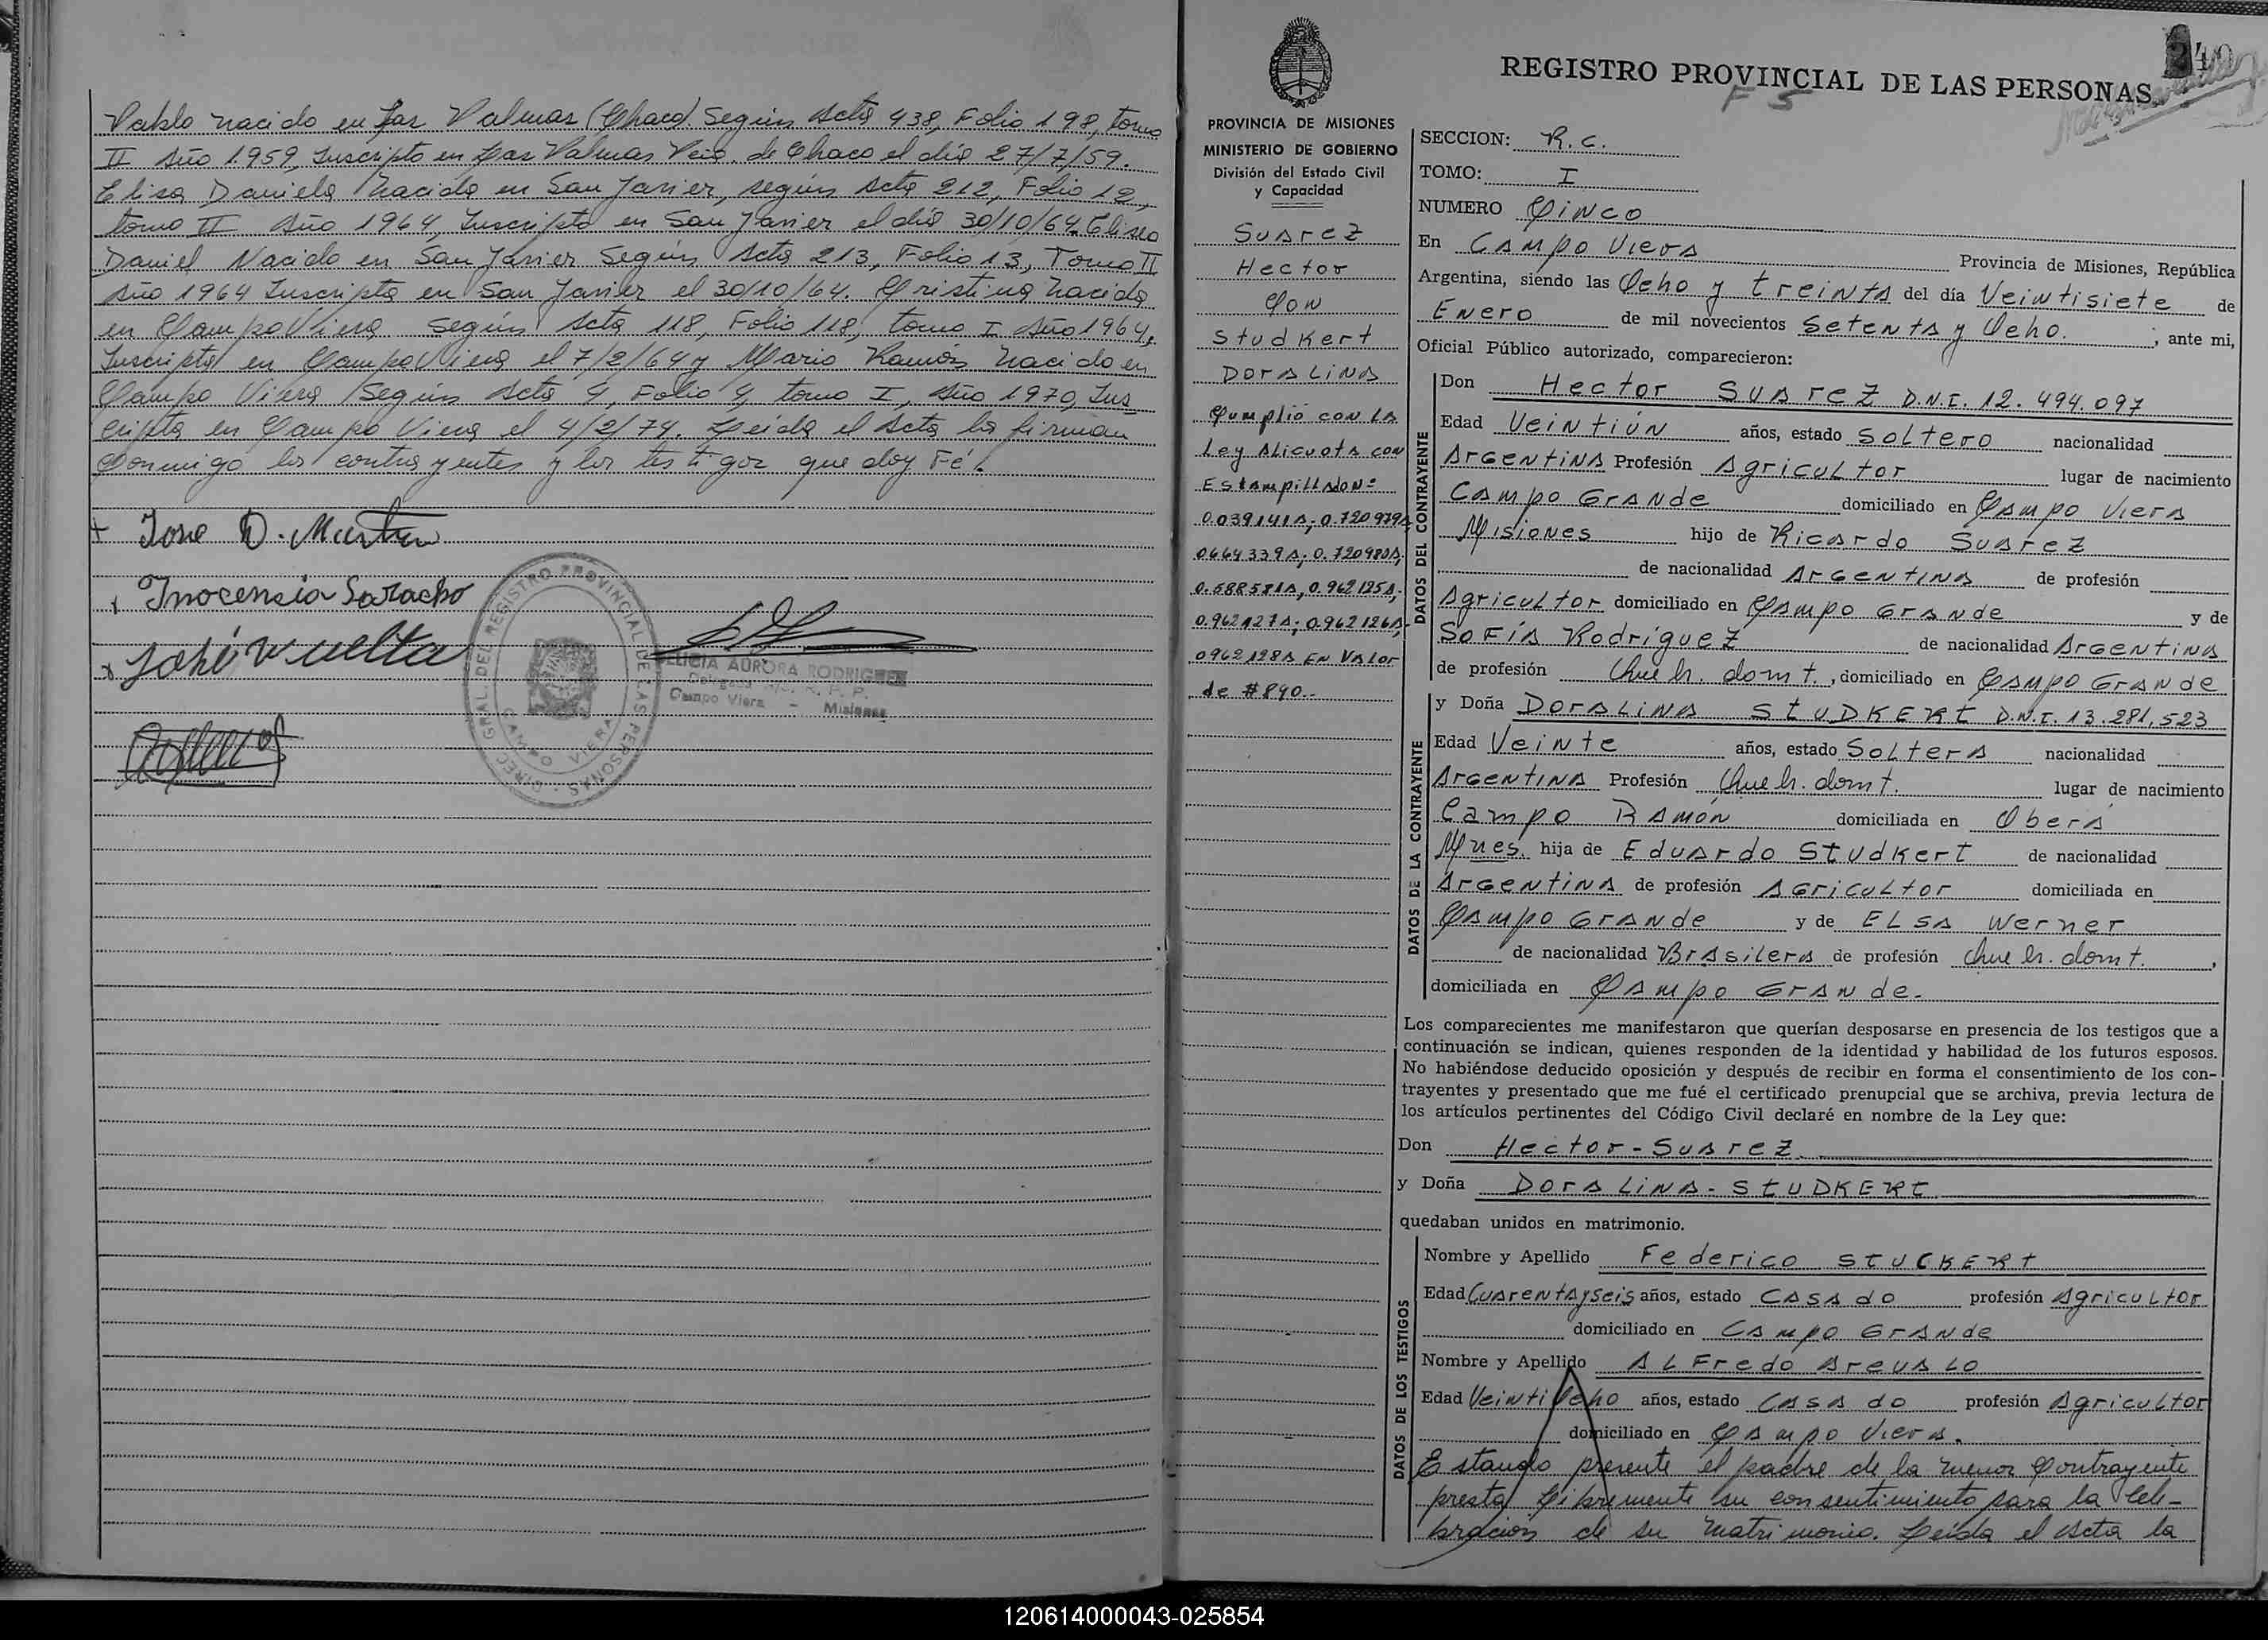 Pablo nacido en Las Palmas (Chaco). Según Acta 438, Folio 198, tomo
II Año 1.959, Inscripto en Las Palmas Pcia. de Chaco el día 27/7/59.
Elisa Daniela nacida en San Javier, según Acta 212, Folio 12,
tomo II Año 1964, Inscripta en San Javier el día 30/10/64. Eliseo
Daniel Nacido en San Javier Según Acta 213, Folio 13, Tomo II
Año 1964 Inscripta en San Javier el 30/10/64. Cristina nacida
en Campo Viera según Acta 118, Folio 118, tomo I Año 1964,
Inscripta en Campo Viera el 7/2/64 y Mario Ramón nacido en
Campo Viera Según Acta 4, Folio 4, tomo I, Año 1970, Ins_
cripta en Campo Viera el 4/2/74. Leída el Acta la firman
Conmigo los contrayentes y los testigos que doy Fé.
Jose D.
Inocencia Saracho
José Vuelta
DIREC. GRAL. DEL REGISTRO PROVINCIAL DE LAS PERSONAS
CAMPO VIERA
AURORA RODRIGUEZ
Campo Viera - Misiones
REGISTRO PROVINCIAL DE LAS PERSONAS
F 5
PROVINCIA DE MISIONES
MINISTERIO DE GOBIERNO
División del Estado Civil
y Capacidad
Suarez
Hector
Con
Studkert
Doralina
Cumplió con la
Ley Alicuota con
Estampilla Nº
0.039141A; 0.720979A,
0.664339A; 0.720980A;
0.588581A, 0.962125A,
0.962127A; 0.962126A,
0962128A en Valor
de #890.-
SECCION: R.C.
TOMO: I
NUMERO Cinco
En Campo Viera Provincia de Misiones, República
Argentina, siendo las Ocho y treinta del día Veintisiete de
Enero de mil novecientos Setenta y Ocho. ; ante mi,
Oficial Público autorizado, comparecieron:
DATOS DEL CONTRAYENTE
Don Hector Suarez D.N.I. 12.494.097
Edad Veintiún años, estado Soltero nacionalidad
Argentina Profesión Agricultor lugar de nacimiento
Campo Grande domiciliado en Campo Viera
Misiones hijo de Ricardo Suarez
de nacionalidad Argentina de profesión
Agricultor domiciliado en Campo Grande y de
Sofía Rodriguez de nacionalidad Argentina
de profesión Queh. domt. , domiciliado en Campo Grande
DATOS DE LA CONTRAYENTE
y Doña Doralina Studkert D.N.I. 13.281.523
Edad Veinte años, estado Soltera nacionalidad
Argentina Profesión Queh. domt. lugar de nacimiento
Campo Ramón domiciliada en Oberá
Mnes. hija de Eduardo Studkert de nacionalidad
Argentina de profesión Agricultor domiciliada en
Campo Grande y de Elsa Werner
de nacionalidad Brasilera de profesión Queh. domt. ,
domiciliada en Campo Grande.
Los comparecientes me manifestaron que querían desposarse en presencia de los testigos que a
continuación se indican, quienes responden de la identidad y habilidad de los futuros esposos.
No habiéndose deducido oposición y después de recibir en forma el consentimiento de los con-
trayentes y presentado que me fué el certificado prenupcial que se archiva, previa lectura de
los artículos pertinentes del Código Civil declaré en nombre de la Ley que:
Don Hector - Suarez
y Doña Doralina - Studkert
quedaban unidos en matrimonio.
DATOS DE LOS TESTIGOS
Nombre y Apellido Federico Stuckert
Edad Cuarenta y seis años, estado Casado profesión Agricultor
domiciliado en Campo Grande
Nombre y Apellido Alfredo Arevalo
Edad Veintiocho años, estado Casado profesión Agricultor
domiciliado en Campo Viera.
Estando presente el padre de la menor Contrayente
presta Libremente su consentimiento para la Cele-
bración de su matrimonio. Leída el Acta la
120614000043-025854